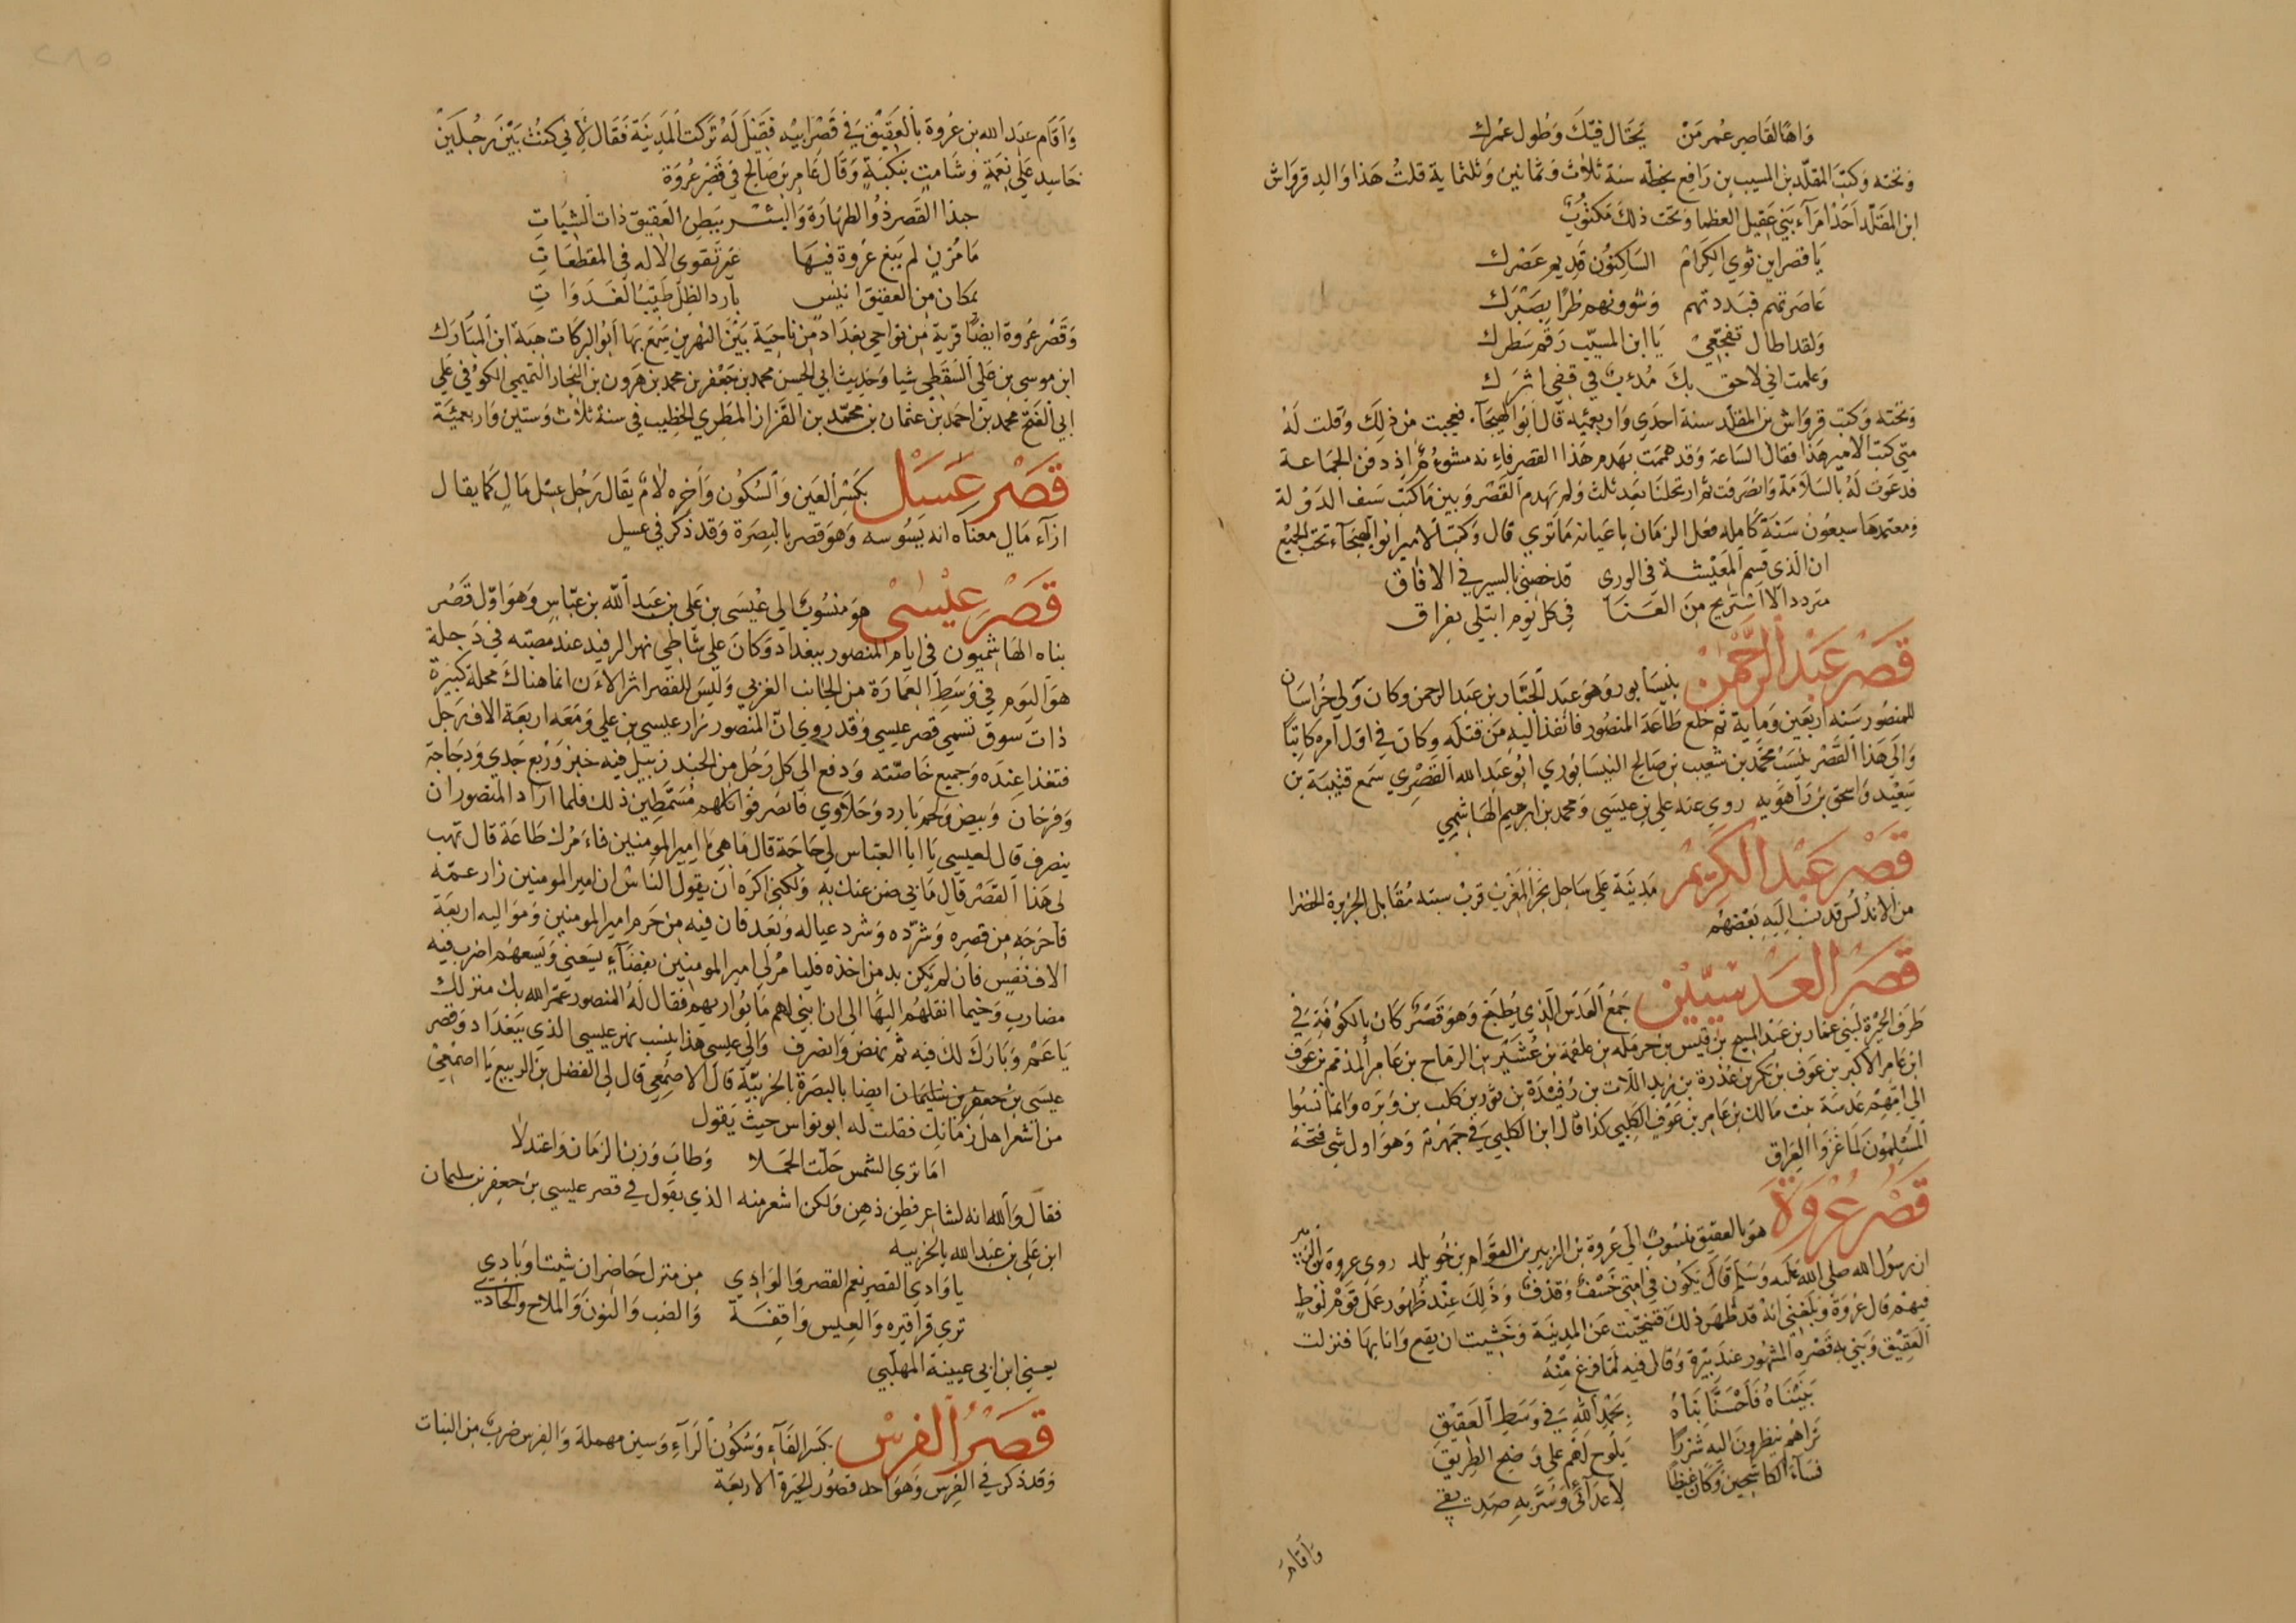 وَاهًا لقَاصِرِ عُمر مَنْ يَختَال فيكَ وَطُول عمْرك
وَتحته وَكتبَ المقلّد بن المسيب بن رَافع بخطّه سَنة ثلاث وَثمانين وَثلثماية قلتُ هَذا وَالد قرواش
ابن المقَلّد اَحَد امرَاء بَني عقيل العظما وَتحت ذلكَ مَكتُوبٌ
يَا قصر اين ثوي الكِرَام السَاكِنُون قديم عَصْرك
عَاصَرتهم فبَددتهم وَشووتهم طرًا بصَبْرك
وَلقد اطال تفجّعي يَا ابن المسيّب رَقم سَطرك
وَعلمت اني لاحق بكَ مُدئب في قفي اثرَك
وَتحته وَكتب قروَاش بن المقلّد سنة احدَي وَاربعميه قال اَبو الهيجآ، فعجبت من ذلكَ وَقلت لَهُ
متي كتب الامير هَذا فقال السَاعة وَقد هممت بهَدم هَذا القصر فاءنه مشوءُم اذ دفن الجمَاعة
فدعَوت لَهُ بالسَلَامَة وَانصَرفت ثم ارتحلنَا بَعد ثلث وَلم يهدم القَصْر وَبين مَا كتبَ سَيف الدَوْلة
وَمعتمدهَا سبعُون سَنَة كَاملة فعل الزمَان باعيانه مَا تَري قال وَكتبَ الامير ابو الهيجآء تحت الجميْع
ان الذي قسم المعَيْشة في الوري قد خصني بالسير في الافاق
متردد الا اَستَريح منَ العَنَا في كل يَوم ابتلي بفراق
قَصْر عَبْد الرَّحْمٰن بنيسَابور وَهوَ عبَد الجبَّار بن عَبد الرحمن وكان وَلي خُراسَان
للمنصُور سَنه اربَعين وَماية ثم خلع طَاعَة المنصُور فانفذ اليه مَن قتله وكان في اول امره كاتبًا
وَاِلَي هَذا القَصْر يُنسَبُ محمَّد بن شعيب بن صَالح النيسَابوري ابُو عَبد الله القَصْري سَمع قتيبَة بن
سَعِيْد وَاسحق بن رَاهَويه روي عنه علي بن عيسَي وَمحمد بن ابرهيم الهَاشمي
قَصْر عَبْد الكَرِيْم مَدينَة عَلي سَاحل بَحر المغرْب قربْ سبته مُقَابل الجزيرة الخضرا
من الاندلُس قد نسب اِليَهِ بَعْضهُم
قصَر العَدسِيّيْن جَمْع العَدَس الّذي يُطبَخ وَهوَ قَصْر كَان بالكوفَة في
طَرف الحِيْرة لبني عمار بن عَبد المسيح بن قيس بن حرملة بن علقمة بن عُشَيْر بن الرمَاح بن عَامر المذمّم بن عَوف
ابن عَامر الاكبر بن عَوف بن بكر بن عُذرة بن زيد اللّات بن رُفَيْدَة بن ثَور بن كلب بن وَبَره وَانما نسبُوا
الي امّهِم عَدسَة بنت مَالك بن عَامر بن عَوْف الكَلبي كذا قال ابن الكلبي في جمَهرته وَهوَ اول شي فتحَهُ
المسْلِمُون لمَا غَزَوا العِرَاق
قَصْر عُرْوَةَ هوَ بالعقيق منسُوبٌ الي عُروة بن الزبير بن العَوَّام بن خُويلد روي عروة بن الزبير
ان رسُول الله صلي الله عَليه وَسَلم قَالَ يَكُون في امتي خَسْف وَقذف وَذَلِكَ عِنْد ظُهُور عَمَل قَوْم لُوطٍ
فيهْم قال عُروة وَبلغني انهُ قد ظهَر ذلكَ فتنَحّيت عَن المدِينَة وَخَشيت ان يقع وَانا بهَا فنزلت
العَقِيْق وَبَني به قَصْره المشهُور عندَ بئرة وَقال فيه لمَّا فرغ مِنْهُ
بَنَيْنَاهُ فَاَحْسَنَّا بنَاهُ بِحَمْدِ اللّهِ فِي وَسَطِ العَقِيْقِ
تَراهُم ينظرونَ اليهِ شزرًا يَلُوح لَهُم علي وَضح الطريق
فسَآءَ الكاشحِين وَكَانَ غيظًا لاَعدَائي وَسُرَّ بهِ صَدِيقي
وَاقامَ
وَاَقَام عبد الله بن عُروة بالعَقيْق في قَصْر ابيه فقِيْل لَهُ تَركت المدِينَة فَقَال لأني كنتُ بَيْن رَجُلَيْن
حَاسِد عَلي نِعَمةٍ وَشامتٍ بنكبَةٍ وَقَال عَامر بن صَالح في قَصْر عُروَة
حبذا القَصر ذُو الطهَارَة وَالبئـــر ببَطن العَقيق ذات الشيَاتِ
مَا مُزن لم يَبغ عُروة فيهَا غَير تَقوي الاله في المقطعَاتِ
بمكان من العقيق انيس بارد الظل طَيّب الغَدَوَاتِ
وَقَصْر عُروة ايضًا قرية من نوَاحي بغدَاد من ناحيَة بَين النهرين سَمعَ بهَا اَبُو البركَات هبَة الله ابن المبَارَك
ابن موسي بن عَلي السَقَطِي شيا وَحَديث ابي الحسن محمد بن جَعْفر بن محمد بن هَرون بن النجار التميمي الكوفي علي
ابي الفتح محمد بن احمد بن عثمان بن محمّد بن القَزاز المطَري الخطيب في سنة ثلاث وَستين وَاربعمئَة
قَصْر عِسْل بكَسْر العَين وَالسُكون وَاخره لَامٌ يقَال رَجُل عِسْل مَالٍ كَما يقال
ازآء مَال معناه انه يَسُوسه وَهوَ قصر بالبصرَة وَقد ذُكر في عسل
قَصْر عِيْسٰى هوَ منسُوبٌ الي عيْسَى بن علي بن عَبد اللّه بن عبّاس وَهوَ اوّل قصر
بنَاه الهَاشميون في ايام المنصُور ببغداد وَكانَ علي شاطي نهر الرفيد عند مصبّه في دَجلة
هوَ اليَوم في وَسَطِ العمَارَة من الجانب الغربي وَليسَ للقصر اثر الاءن انما هناكَ محلة كبيرة
ذات سوق تسمي قصر عيسي وَقد روي انّ المنصور زار عيسي بن علي وَمَعَه اربعَة الاف رَجل
فتغذا عندَه وَجميع خَاصّته وَدفع الي كل رَجُل من الجند زنبيل فيه خبز وَرُبع جَدي وَدجَاجة
وَفرخان وَبيض وَلحم بَارد وَحَلَاوي فانصَرفوُا كلهم مُسَمّطين ذلك فلما اراد المنصور ان
ينصرف قال لعيسي يَا ابا العبّاس لي حَاجة قال مَا هي يَا امير المومنين فاءمْرك طاعَة قال تهب
لي هَذا القَصْر قال مَا بي ضن عنك به وَلكني اكرَه ان يقولَ الناس ان امير المومنين زار عمّه
فاخرَجَه من قصره وَشرّده وَشرد عياله وَبَعَد فان فيه من حَرم امير المومنين وَمَواليه اربعَة
الاف نفس فان لم يكن بد من اخذه فليامُر لي امير المومنين بفضَآءٍ يسَعني وَيَسعهُم اضرب فيه
مضَاربِ وَخيما انقلهُم اليهَا الي ان ابني لهم مَا يُوَاريهم فقال لَهُ المنصور عَمّر الله بك منزلك
يَا عَمّ وَبَارَك لكَ فيه ثم نهض وَانصرف وَالي عيسي هَذا ينسب نهر عيسي الذي ببَغْدَاد وَقصر
عيسَي بن جَعفر بن سُليمَان ايضا بالبصرة بالخُرَيبَة قال الاصمَعي قال لي الفضل بن الربيع يَا اصْمَعي
من اشعر اهل زمَانك فقلت له ابو نواس حيث يَقول
امَا تري الشمس حَلّت الحمَلا وَطابَ وَزن الزمَان وَاعتدلَا
فقال وَالله انه لشاعر فطِن ذهن وَلكن اشعر منه الذي يقول في قصر عيسي بن جَعفر بن سليمان
ابن عَلي بن عبَد الله بالخريبه
يا وَادي القصر نعم القصر وَالوادي من منزل حَاضر ان شيت او بَادِي
تري قَراقيره وَالعيس وَاقفَة وَالضب وَالنون وَالملاح وَالحادي
يعني ابن ابي عيينة المهلّبي
قَصْرُ الفِرسْ بكَسر الفآء وَسُكون الرَآء وَسين مهملة وَالفرس ضربٌ من النبات
وَقد ذكر في الفِرس وَهوَ احد قصُور الحيَرة الاربَعَة